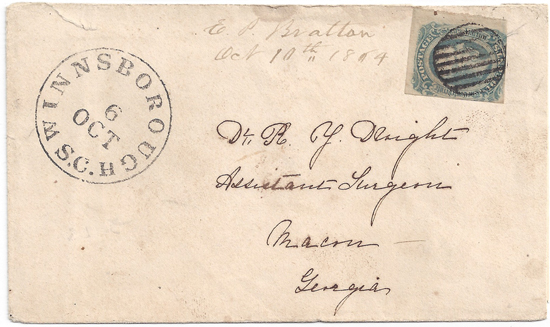 E. P. Bratton
Oct 10th 1864
WINNSBOROUGH S.C.
6
OCT
Dr. R. Y. Dwight
Assistant Surgeon
Macon
Georgia